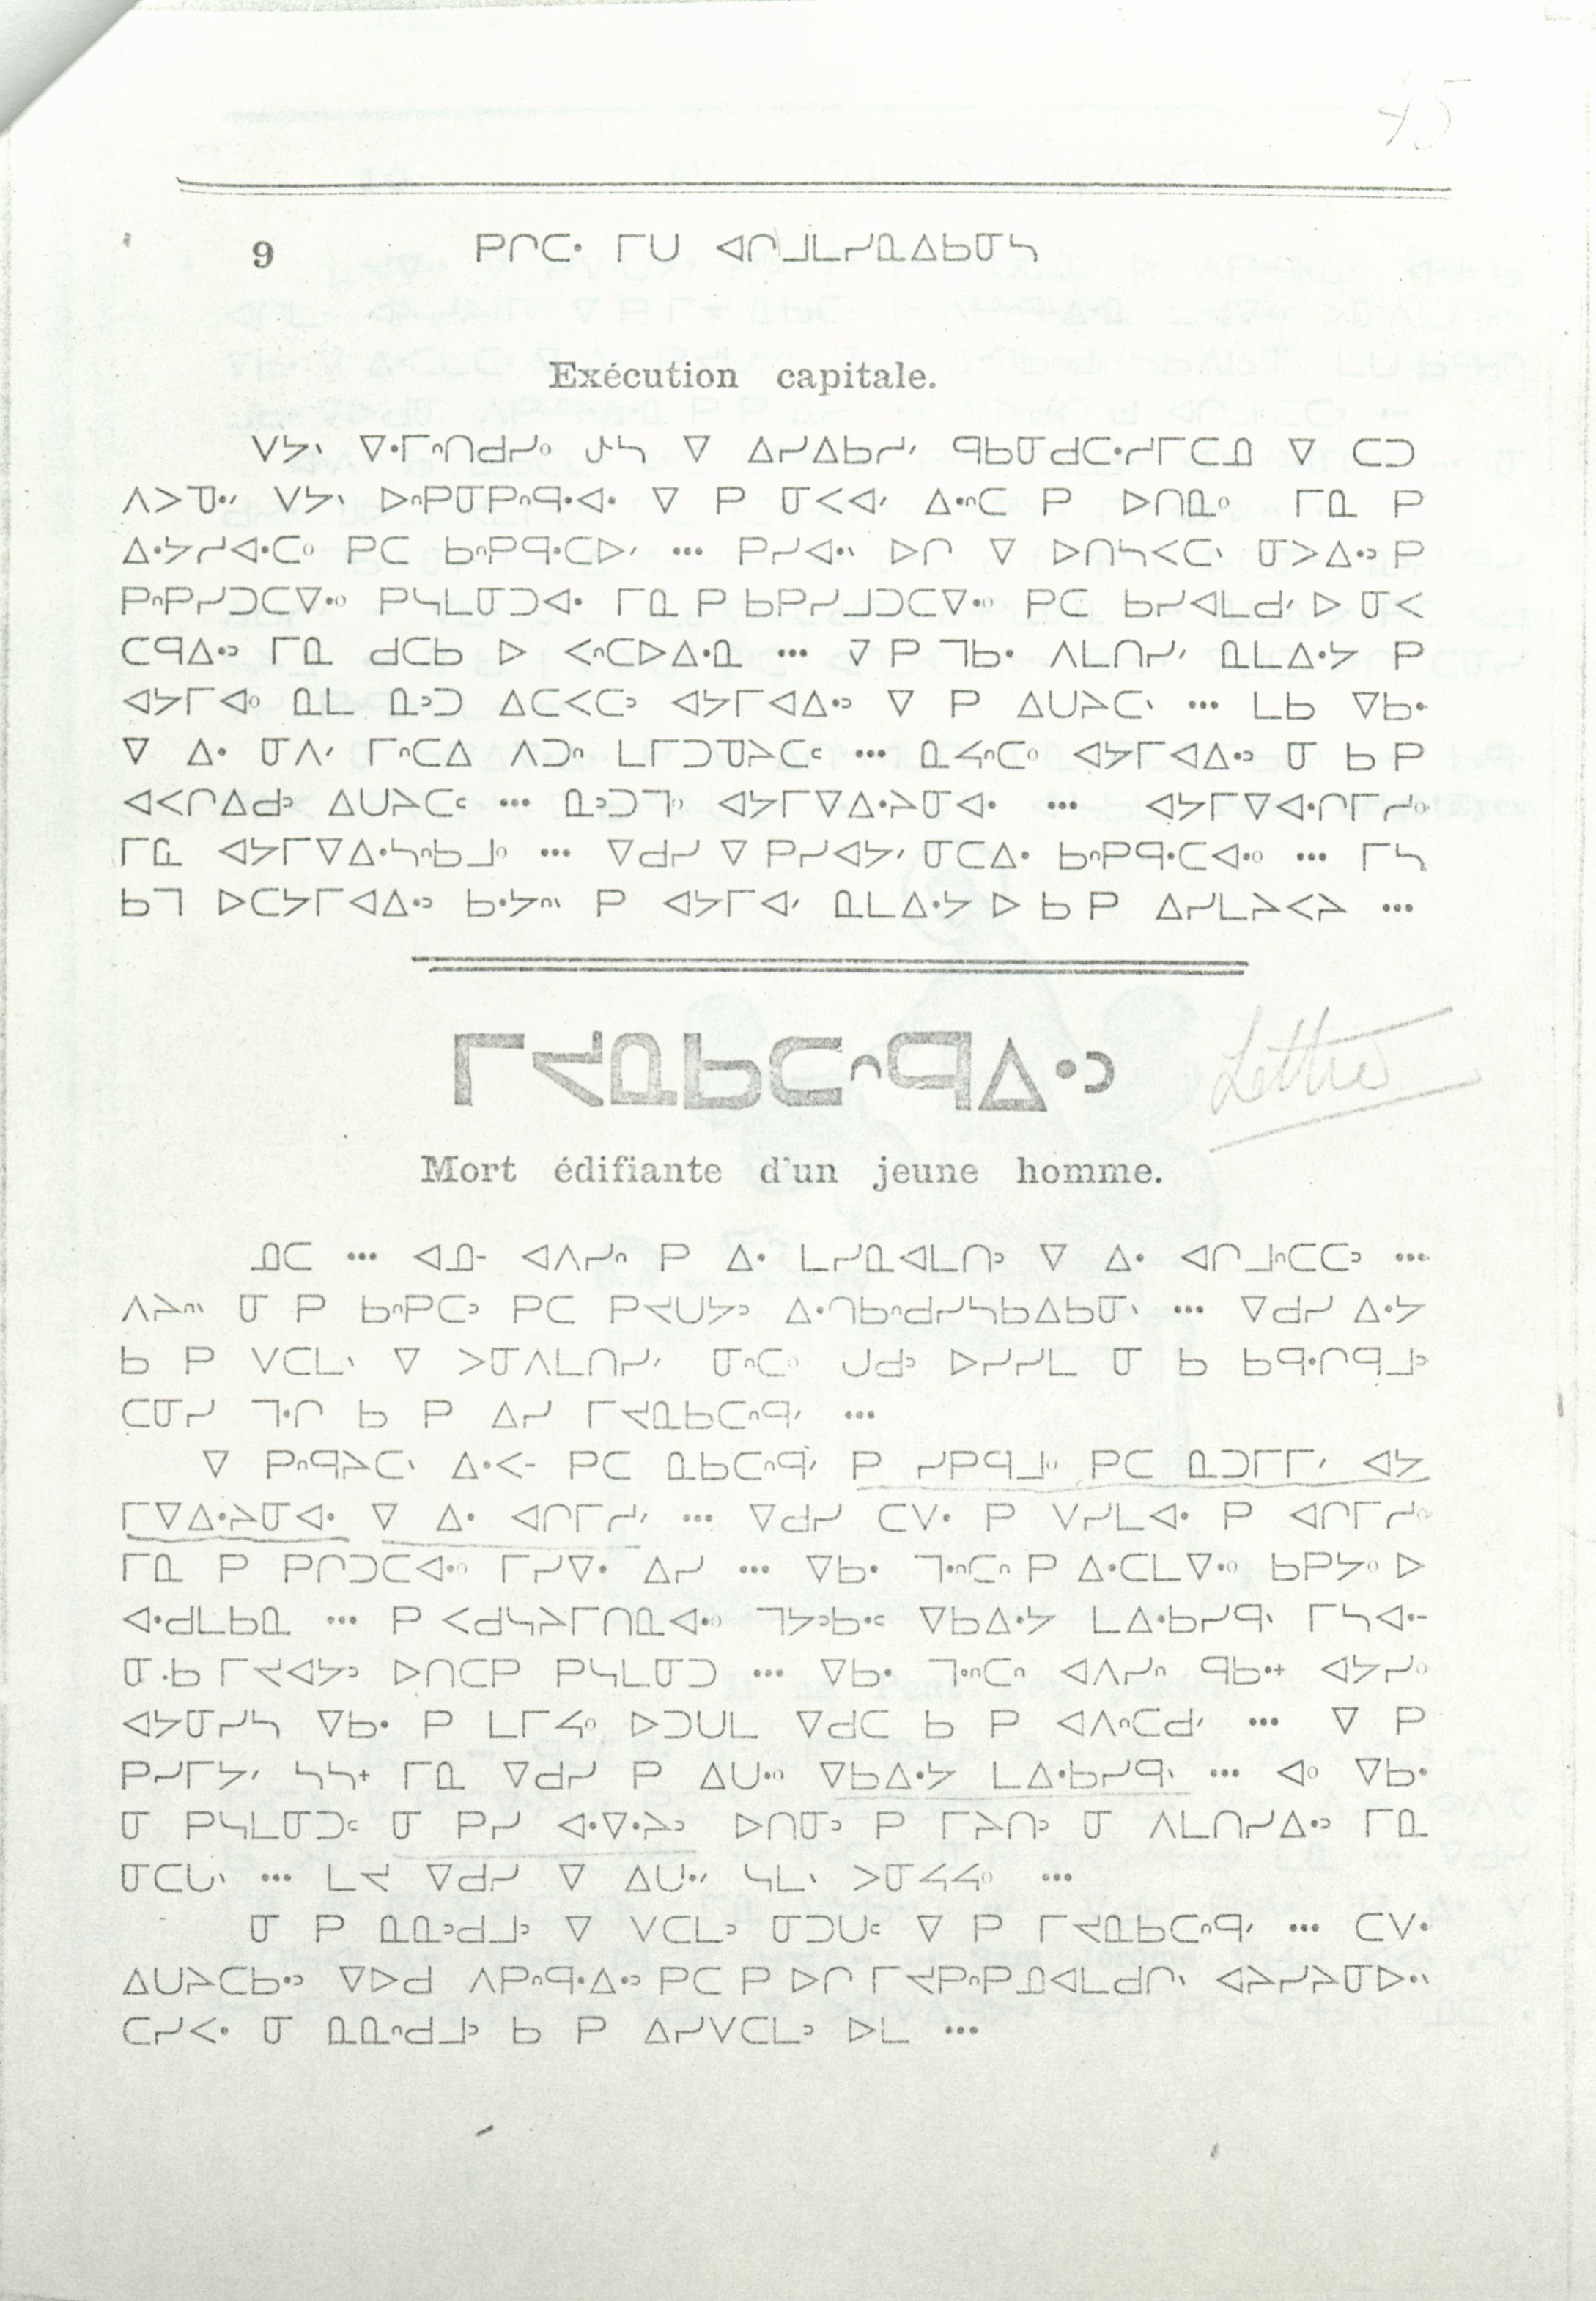 45
9 ᑭᒋᑕᐧ ᒥᑌ ᐊᒋᒧᒪᓯᓇᐃᑲᓂᓴ
Exécution capitale.
ᐯᔭᐠ ᐁᐧᒥᐢᑎᑯᓯᐤ ᒍᓴ ᐁ ᐃᓯᐃᑲᓱᐟ ᑫᑲᓂᑯᑕᐧᓱᒥᑕᓄ ᐁ ᑕᑐ
ᐱᐳᓀᐧᐟ ᐯᔭᐠ ᐅᐢᑭᓂᑭᐢᑫᐧᐊᐧ ᐁ ᑭ ᓂᐸᐊᐟ ᐃᐧᐢᑕ ᑭ ᐅᑎᓇᐤ ᒥᓇ ᑭ
ᐃᐧᔭᓱᐊᐧᑕᐤ ᑭᑕ ᑲᐢᑭᑫᐧᑕᐅᐟ ... ᑭᓯᐊᐧᐠ ᐅᒋ ᐁ ᐅᑎᓴᐸᑕᐠ ᓂᐳᐃᐧᐣ ᑭ
ᑭᐢᑭᓯᑐᑕᐁᐧᐤ ᑭᓴᒪᓂᑐᐊᐧ ᒥᓇ ᑭ ᑲᑭᓯᒧᑐᑕᐁᐧᐤ ᑭᑕ ᑲᓯᐊᒪᑯᐟ ᐅ ᓂᐸ
ᑕᑫᐃᐧᐣ ᒥᓇ ᑯᑕᑲ ᐅ ᐸᐢᑕᐅᐃᐧᓇ ... ᐁ ᑭ ᒣᑲᐧ ᐱᒪᑎᓯᐟ ᓇᒪᐃᐧᔭ ᑭ
ᐊᔭᒥᐊᐤ ᓇᒪ ᓇᐣᑐ ᐃᑕᐸᑕᐣ ᐊᔭᒥᐊᐃᐧᐣ ᐁ ᑭ ᐃᑌᔨᑕᐠ ... ᒪᑲ ᐁᑲᐧ
ᐁ ᐃᐧ ᓂᐱᐟ ᒥᐢᑕᐃ ᐱᑐᐢ ᒪᒥᑐᓀᔨᑕᒼ ... ᓇᔦᐢᑕᐤ ᐊᔭᒥᐊᐃᐧᐣ ᓂ ᑲ ᑭ
ᐊᐸᒋᐃᑯᐣ ᐃᑌᔨᑕᒼ ... ᓇᐣᑐᒣᐤ ᐊᔭᒥᐁᐃᐧᔨᓂᐊᐧ ... ᐊᔭᒥᐁᐊᐧᒋᒥᓱᐤ
ᒥᓇ ᐊᔭᒥᐁᐃᐧᓴᐢᑲᒧᐤ ... ᐁᑯᓯ ᐁ ᑭᓯᐊᔭᐟ ᓂᑕᐃᐧ ᑲᐢᑭᑫᐧᑕᐊᐧᐤ ... ᒥᓴ
ᑲᒣ ᐅᑕᔭᒥᐊᐃᐧᐣ ᑲᐧᔭᐢᐠ ᑭ ᐊᔭᒥᐊᐟ ᓇᒪᐃᐧᔭ ᐅ ᑲ ᑭ ᐃᓯᒪᔨᐸᔨ ...
ᒥᔪᓇᑲᑕᐢᑫᐃᐧᐣ
Lettre
Mort édifiante d'un jeune homme.
ᓄᑕ ... ᐊᓄᐨ ᐊᐱᓯᐢ ᑭ ᐃᐧ ᒪᓯᓇᐊᒪᑎᐣ ᐁ ᐃᐧ ᐊᒋᒧᐢᑕᑕᐣ ...
ᐱᔨᐢᐠ ᓂ ᑭ ᑲᐢᑭᑕᐣ ᑭᑕ ᑭᔪᑌᔭᐣ ᐃᐧᒉᑲᐢᑯᓯᓴᑲᐃᑲᓂᐠ ... ᐁᑯᓯ ᐃᐧᔭ
ᑲ ᑭ ᐯᑕᒪᐠ ᐁ ᐳᓂᐱᒪᑎᓯᐟ ᓂᐢᑕᐤ ᒍᑯᐣ ᐅᓯᓯᒪ ᓂ ᑲ ᑲᑫᐧᒋᑫᒧᐣ
ᑕᓂᓯ ᒣᐧᒋ ᑲ ᑭ ᐃᓯ ᒥᔪᓇᑲᑕᐢᑫᐟ ...
ᐁ ᑭᐢᑫᔨᑕᐠ ᐃᐧᐸᐨ ᑭᑕ ᓇᑲᑕᐢᑫᐟ ᑭ ᓯᑭᑫᒧᐤ ᑭᑕ ᓇᑐᒥᒥᐟ ᐊᔭ
ᒥᐁᐃᐧᔨᓂᐊᐧ ᐁ ᐃᐧ ᐊᒋᒥᓱᐟ ... ᐁᑯᓯ ᑕᐯᐧ ᑭ ᐯᓯᒪᐊᐧ ᑭ ᐊᒋᒥᓱᐤ
ᒥᓇ ᑭ ᑭᒋᑐᑕᐊᐧᐤ ᒥᓯᐁᐧ ᐃᓯ ... ᐁᑲᐧ ᒣᐧᐢᑕᐢ ᑭ ᐃᐧᑕᒪᐁᐧᐤ ᑲᑭᔭᐤ ᐅ
ᐊᐧᑯᒪᑲᓇ ... ᑭ ᐸᑯᓴᔨᒥᑎᓇᐊᐧᐤ ᒣᔭᐣᑲᐧᒼ ᐁᑲᐃᐧᔭ ᒪᐃᐧᑲᓯᑫᐠ ᒥᓴᐊᐧᐨ
ᓂ ᑲ ᒥᔪᐊᔭᐣ ᐅᑎᑕᑭ ᑭᓴᒪᓂᑐ ... ᐁᑲᐧ ᒣᐧᐢᑕᐢ ᐊᐱᓯᐢ ᑫᑲᐧᕀ ᐊᔭᓯᐤ
ᐊᔭᓂᓯᓴ ᐁᑲᐧ ᑭ ᒪᒥᔦᐤ ᐅᑐᑌᒪ ᐁᑯᑕ ᑲ ᑭ ᐊᐱᐢᑕᑯᐟ ... ᐁ ᑭ
ᑭᓯᒥᔭᐟ ᓴᓴᕀ ᒥᓇ ᐁᑯᓯ ᑭ ᐃᑌᐧᐤ ᐁᑲᐃᐧᔭ ᒪᐃᐧᑲᓯᑫᐠ ... ᐊᐤ ᐁᑲᐧ
ᓂ ᑭᓴᒪᓂᑐᒼ ᓂ ᑭᓯ ᐊᐧᐁᐧᔨᐣ ᐅᑎᓂᐣ ᑭ ᒥᔨᑎᐣ ᓂ ᐱᒪᑎᓯᐃᐧᐣ ᒥᓇ
ᓂᑕᒐᐠ ... ᒪᔪ ᐁᑯᓯ ᐁ ᐃᑌᐧᐟ ᓴᒪᐠ ᐳᓂᔦᔦᐤ ...
ᓂ ᑭ ᓇᓇᐢᑯᒧᐣ ᐁ ᐯᑕᒪᐣ ᓂᑐᑌᒼ ᐁ ᑭ ᒥᔪᓇᑲᑕᐢᑫᐟ ... ᑕᐯᐧ
ᐃᑌᔨᑕᑲᐧᐣ ᐁᐅᑯ ᐱᑭᐢᑫᐧᐃᐧᐣ ᑭᑕ ᑭ ᐅᒋ ᒥᔪᑭᐢᑭᓄᐊᒪᑯᒋᐠ ᐊᔨᓯᔨᓂᐅᐧᐠ
ᑕᓯᐸᐧ ᓂ ᓇᓇᐢᑯᒧᐣ ᑲ ᑭ ᐃᓯᐯᑕᒪᐣ ᐅᒪ ...